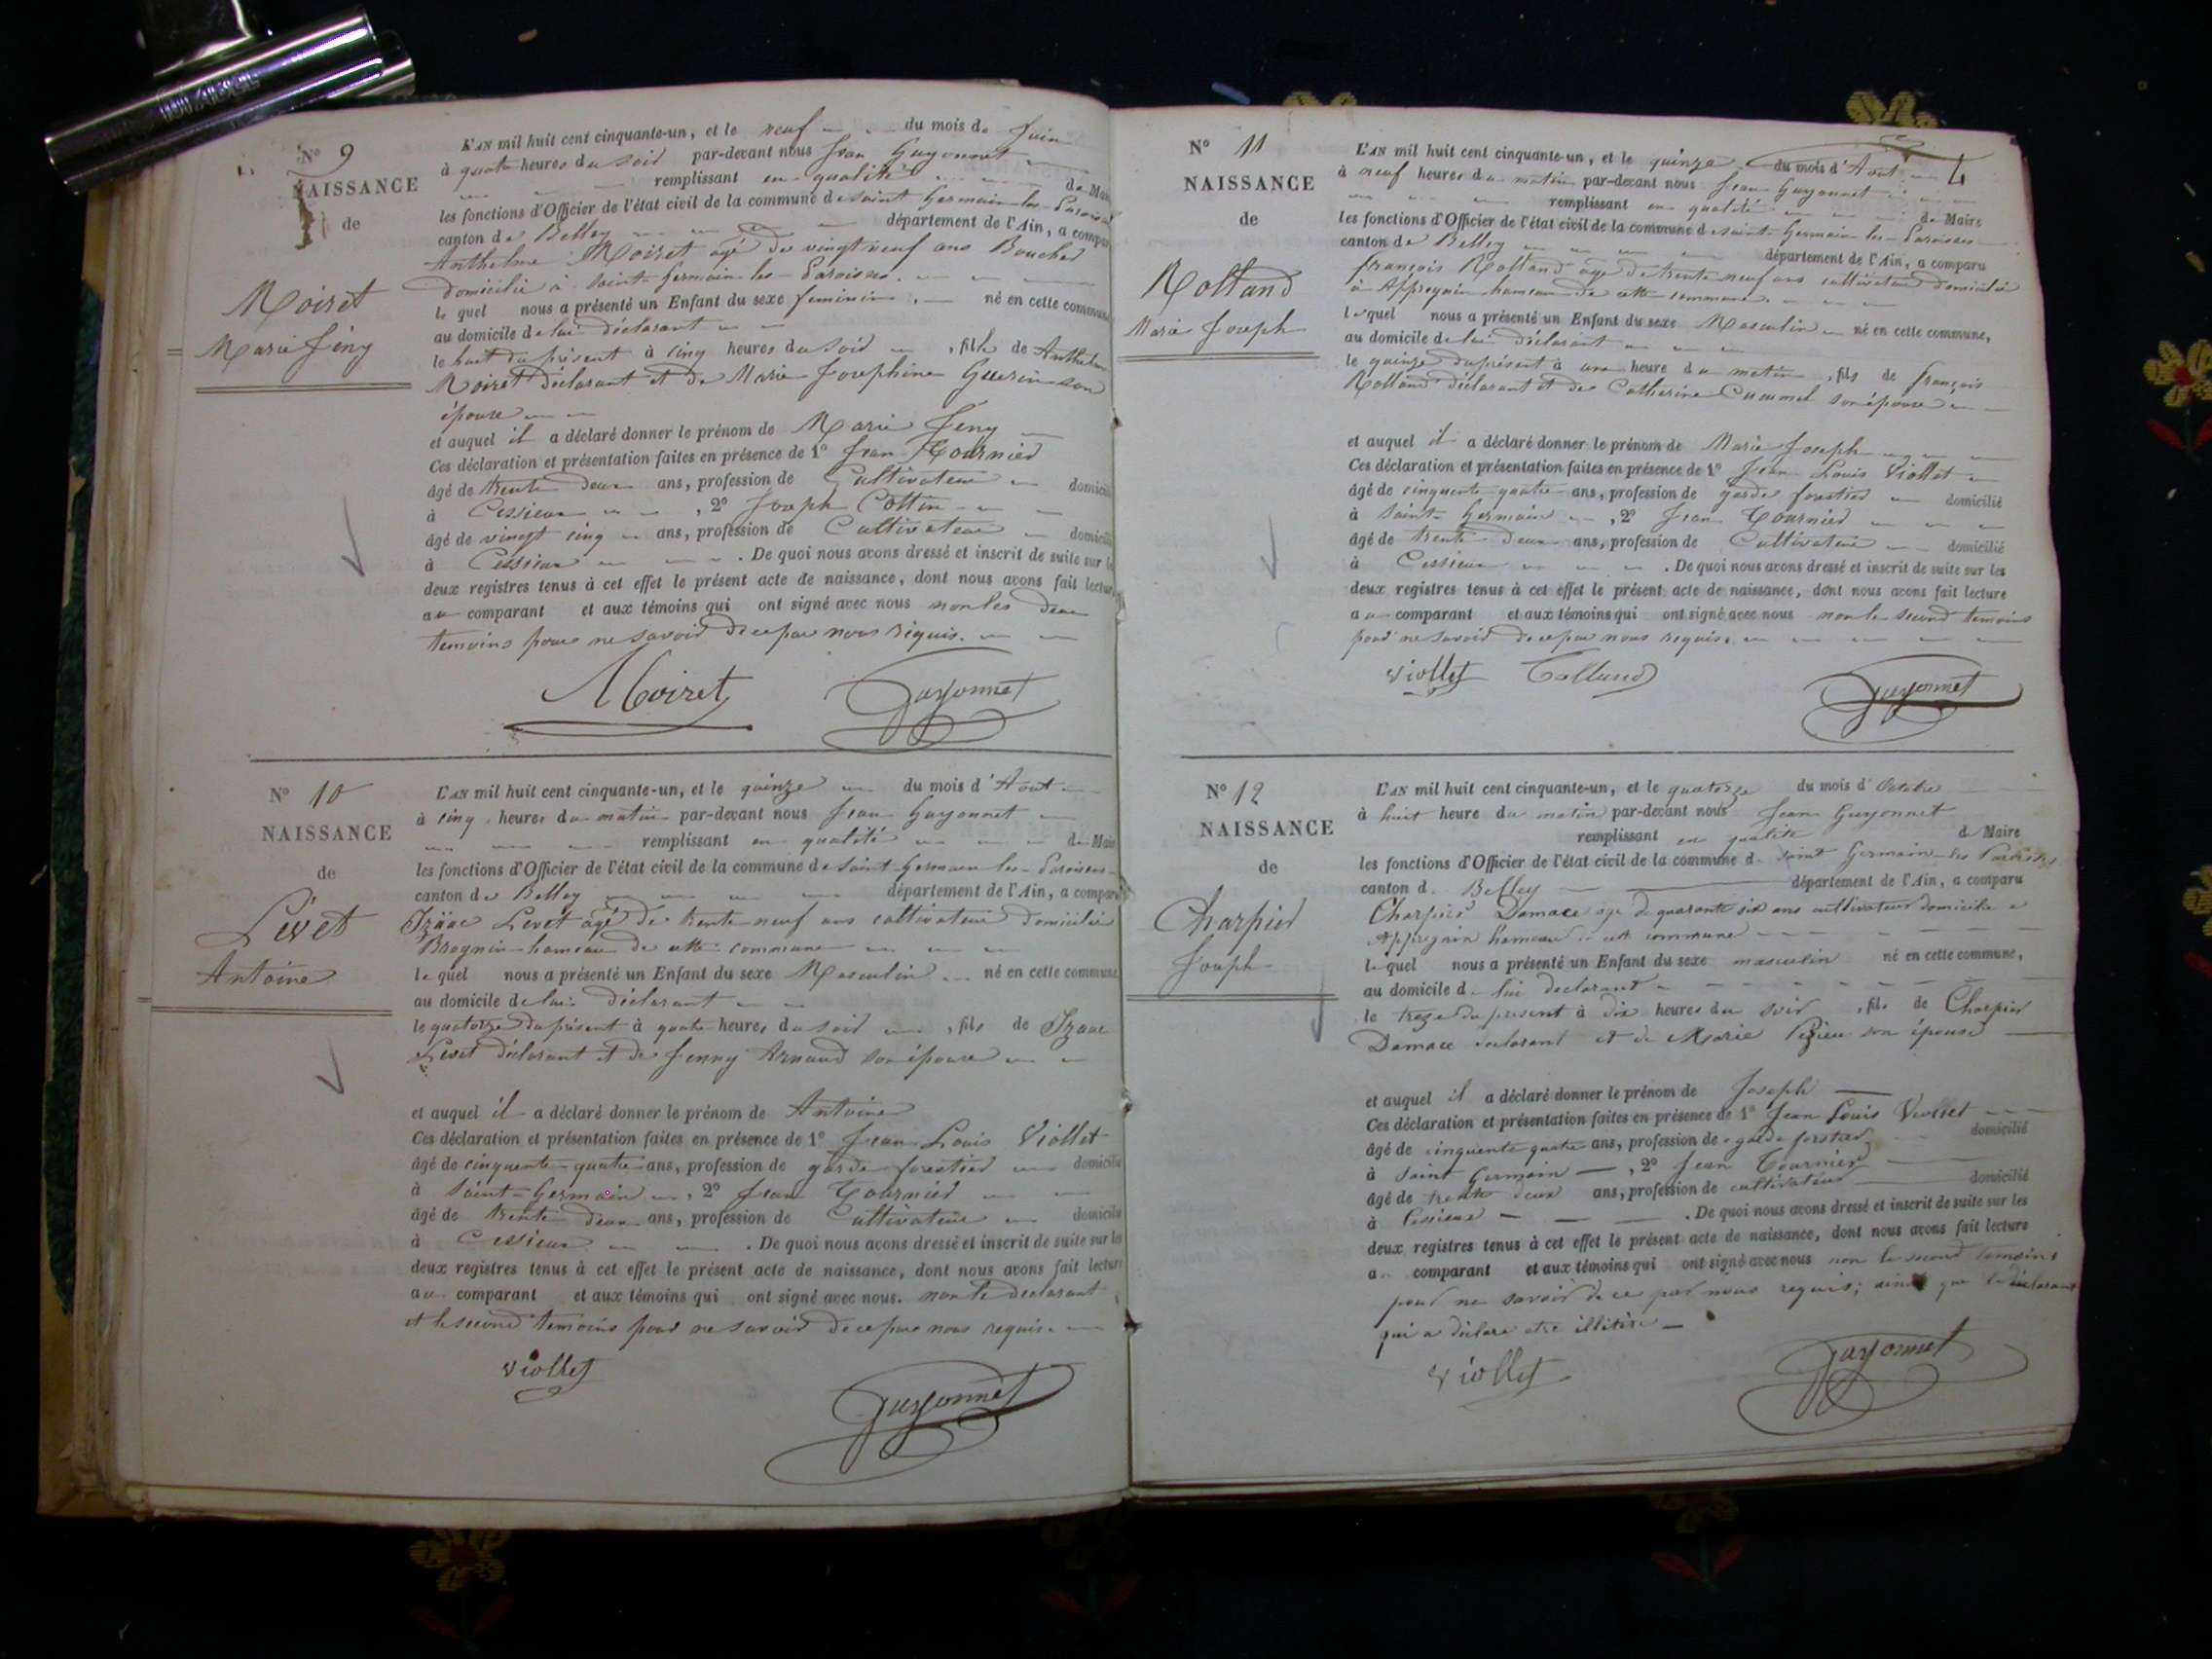 N° 9
NAISSANCE
de
Moiret
Marie Jény
L'AN mil huit cent cinquante-un, et le neuf du mois de Juin
à quatre heures du soir par-devant nous Jean Guyonnet
remplissant en qualité de Maire
les fonctions d'Officier de l'état civil de la commune de Saint Germain les Paroisses
canton de Belley département de l'Ain, a comparu
Anthelme Moiret agé de vingt neuf ans Boucher
domicilié à Saint-Germain-les-Paroisses.
le quel nous a présenté un Enfant du sexe feminin, né en cette commune
au domicile de lui déclarant
le huit du présent à cinq heures du soir, fille de Anthelme
Moiret déclarant et de Marie Josephine Guerin son
épouse
et auquel il a déclaré donner le prénom de Marie Jeny
Ces déclaration et présentation faites en présence de 1° Jean Tournier
âgé de trente deux ans, profession de Cultivateur domicilié
à Cessieux, 2° Joseph Cottin
âgé de vingt cinq ans, profession de Cultivateur domicilié
à Cessieux. De quoi nous avons dressé et inscrit de suite sur les
deux registres tenus à cet effet le présent acte de naissance, dont nous avons fait lecture
au comparant et aux témoins qui ont signé avec nous non les deux
temoins pour ne savoir de ce par nous réquis.
Moiret Guyonnet
N° 10
NAISSANCE
de
Lévet
Antoine
L'AN mil huit cent cinquante-un, et le quinze du mois d'Aout
à cinq heures du matin par-devant nous Jean Guyonnet
remplissant en qualité de Maire
les fonctions d'Officier de l'état civil de la commune de Saint-Germain-les-Paroisses
canton de Belley département de l'Ain, a comparu
Izäac Levet agé de trente neuf ans cultivateur domicilié
Brognin hameau de cette commune
le quel nous a présenté un Enfant du sexe Masculin né en cette commune,
au domicile de lui déclarant
le quatorze du présent à quatre heures du soir, fils de Izaac
Levet déclarant et de Jenny Arnaud son épouse
et auquel il a déclaré donner le prénom de Antoine
Ces déclaration et présentation faites en présence de 1° Jean Louis Viollet
âgé de cinquante quatre ans, profession de garde forestier domicilié
à Saint-Germain, 2° Jean Tournier
âgé de trente deux ans, profession de Cultivateur domicilié
à Cessieux. De quoi nous avons dressé et inscrit de suite sur les
deux registres tenus à cet effet le présent acte de naissance, dont nous avons fait lecture
au comparant et aux témoins qui ont signé avec nous. non le declarant
et le second temoins pour ne savoir de ce par nous requis.
viollet Guyonnet
4
N° 11
NAISSANCE
de
Rolland
Marie Joseph
L'AN mil huit cent cinquante-un, et le quinze du mois d'Aout
à neuf heures du matin par-devant nous Jean Guyonnet
remplissant en qualité de Maire
les fonctions d'Officier de l'état civil de la commune de Saint-Germain les-Paroisses
canton de Belley département de l'Ain, a comparu
françois Rolland agé de trente neuf ans cultivateur domicilié
à Appregnin hameau de cette commune.
lequel nous a présenté un Enfant du sexe Masculin né en cette commune,
au domicile de lui déclarant
le quinze du présent à une heure du matin, fils de françois
Rolland déclarant et de Catherine son épouse
et auquel il a déclaré donner le prénom de Marie Joseph
Ces déclaration et présentation faites en présence de 1° Jean Louis Viollet
âgé de cinquante quatre ans, profession de garde forestier domicilié
à Saint-Germain, 2° Jean Tournier
âgé de trente deux ans, profession de Cultivateur domicilié
à Cessieux. De quoi nous avons dressé et inscrit de suite sur les
deux registres tenus à cet effet le présent acte de naissance, dont nous avons fait lecture
au comparant et aux témoins qui ont signé avec nous non le second temoins
pour ne savoir de ce par nous requis.
viollet Rolland Guyonnet
N° 12
NAISSANCE
de
Charpier
Joseph
L'AN mil huit cent cinquante-un, et le quatorze du mois d'Octobre
à huit heure du matin par-devant nous Jean Guyonnet
remplissant en qualité d Maire
les fonctions d'Officier de l'état civil de la commune d. Saint Germain-les Paroisses
canton d. Belley département de l'Ain, a comparu
Charpier Damace age de quarante six ans cultivateur domicilié a
Appregnin hameau de cette commune
lequel nous a présenté un Enfant du sexe masculin né en cette commune,
au domicile d. lui declarant
le treze du present à dix heures du soir, fils de Charpier
Damace declarant et de Marie son épouse
et auquel il a déclaré donner le prénom de Joseph
Ces déclaration et présentation faites en présence de 1° Jean Louis Viollet
âgé de cinquente quatre ans, profession de garde forstier domicilié
à Saint Germain, 2° Jean Tournier
âgé de trente deux ans, profession de cultivateur domicilié
à Cessieux. De quoi nous avons dressé et inscrit de suite sur les
deux registres tenus à cet effet le présent acte de naissance, dont nous avons fait lecture
au comparant et aux témoins qui ont signé avec nous non le second temoins
pour ne savoir de ce par nous requis; ainsi que le déclarant
qui a déclaré etre illitéré
viollet Guyonnet